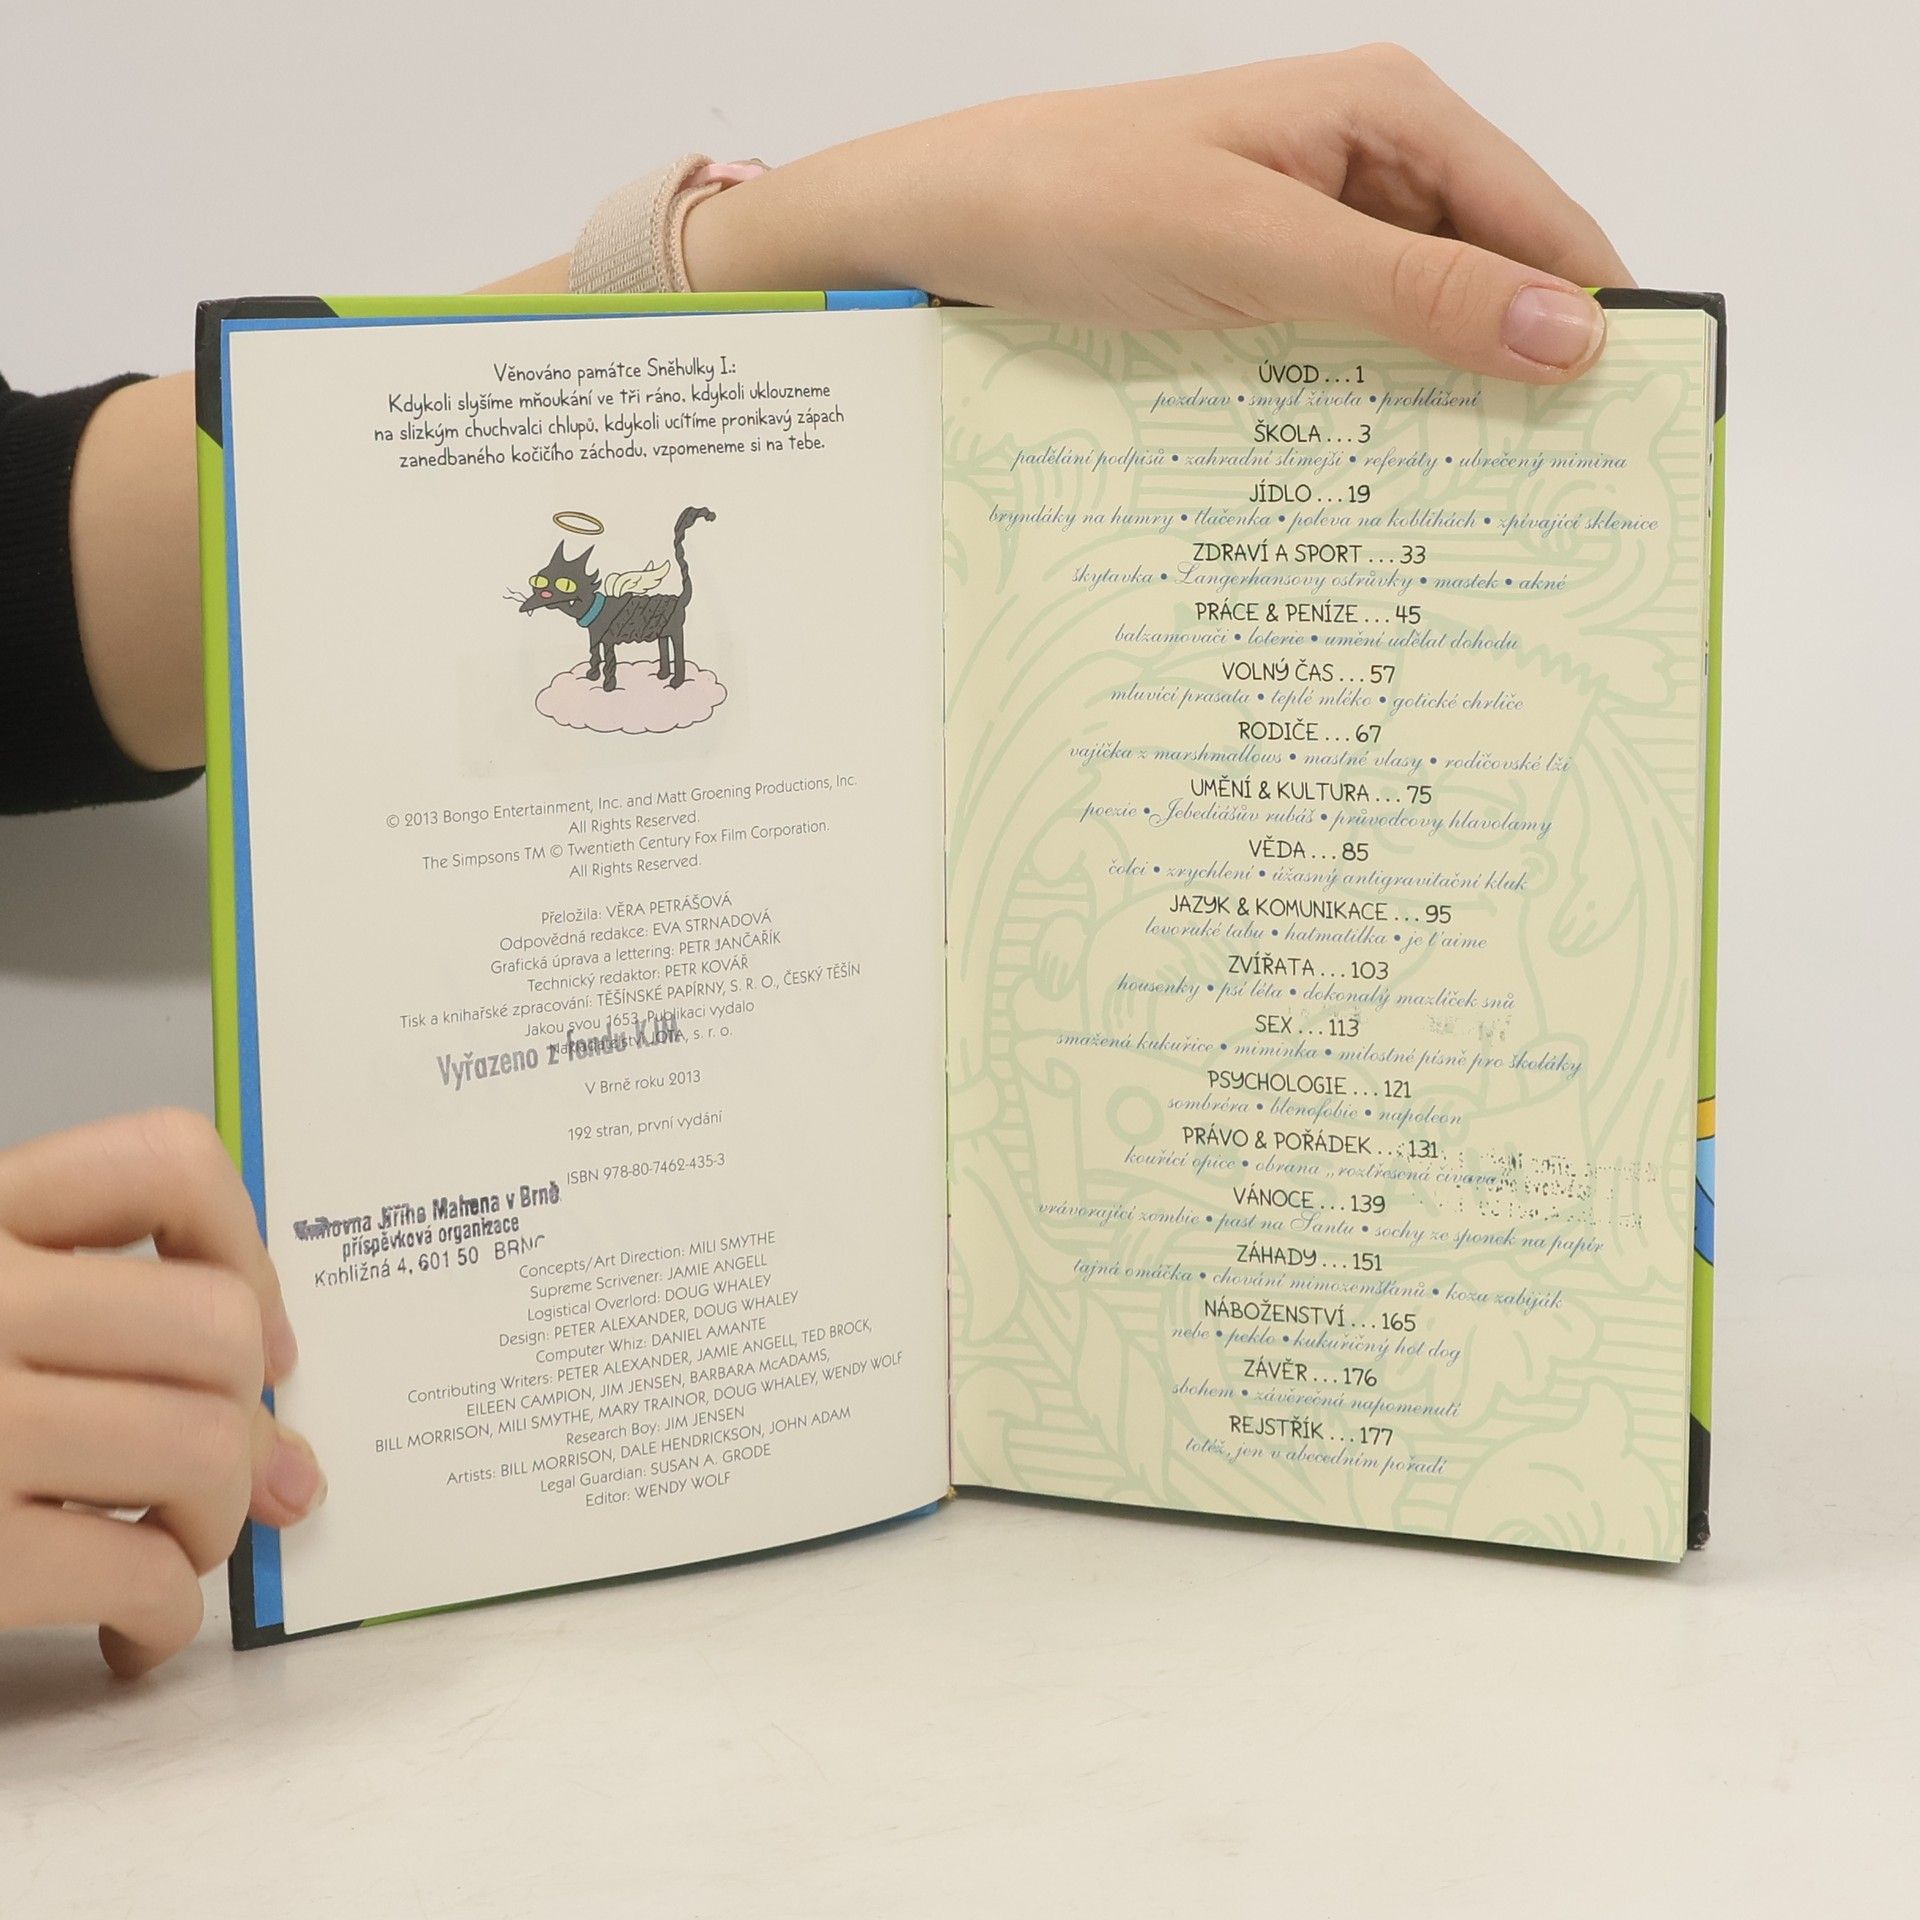 Věnováno památce Sněhulky I.:
Kdykoli slyšíme mňoukání ve tři ráno, kdykoli uklouzneme
na slizkým chuchvalci chlupů, kdykoli ucítíme pronikavý zápach
zanedbaného kočičího záchodu, vzpomeneme si na tebe.
© 2013 Bongo Entertainment, Inc. and Matt Groening Productions, Inc.
All Rights Reserved.
The Simpsons TM © Twentieth Century Fox Film Corporation.
All Rights Reserved.
Přeložila: VĚRA PETRÁŠOVÁ
Odpovědná redakce: EVA STRNADOVÁ
Grafická úprava a lettering: PETR JANČAŘÍK
Technický redaktor: PETR KOVÁŘ
Tisk a knihařské zpracování: TĚŠÍNSKÉ PAPÍRNY, S. R. O., ČESKÝ TĚŠÍN
Jakou svou 1653. Publikaci vydalo
Nakladatelství JOTA, s. r. o.
Vyřazeno z fondu KJM
V Brně roku 2013
192 stran, první vydání
ISBN 978-80-7462-435-3
Knihovna Jiřího Mahena v Brně
příspěvková organizace
Kobližná 4, 601 50 BRNO
Concepts/Art Direction: MILI SMYTHE
Supreme Scrivener: JAMIE ANGELL
Logistical Overlord: DOUG WHALEY
Design: PETER ALEXANDER, DOUG WHALEY
Computer Whiz: DANIEL AMANTE
Contributing Writers: PETER ALEXANDER, JAMIE ANGELL, TED BROCK,
EILEEN CAMPION, JIM JENSEN, BARBARA McADAMS,
BILL MORRISON, MILI SMYTHE, MARY TRAINOR, DOUG WHALEY, WENDY WOLF
Research Boy: JIM JENSEN
Artists: BILL MORRISON, DALE HENDRICKSON, JOHN ADAM
Legal Guardian: SUSAN A. GRODE
Editor: WENDY WOLF
ÚVOD...1
pozdrav • smysl života • prohlášení
ŠKOLA...3
padělání podpisů • zahradní slimejši • referáty • ubrečený mimina
JÍDLO...19
bryndáky na humry • tlačenka • poleva na koblihách • zpívající sklenice
ZDRAVÍ A SPORT...33
škytavka • Langerhansovy ostrůvky • mastek • akné
PRÁCE & PENÍZE...45
balzamovači • loterie • umění udělat dohodu
VOLNÝ ČAS...57
mluvící prasata • teplé mléko • gotické chrliče
RODIČE...67
vajíčka z marshmallows • mastné vlasy • rodičovské lži
UMĚNÍ & KULTURA...75
poezie • Jebediášův rubáš • průvodcovy hlavolamy
VĚDA...85
čolci • zrychlení • úžasný antigravitační kluk
JAZYK & KOMUNIKACE...95
levoruké tabu • hatmatilka • je t'aime
ZVÍŘATA...103
housenky • psí léta • dokonalý mazlíček snů
SEX...113
smažená kukuřice • miminka • milostné písně pro školáky
PSYCHOLOGIE...121
sombréra • blenofobie • napoleon
PRÁVO & POŘÁDEK...131
kouřící opice • obrana „roztřesená čivava"
VÁNOCE...139
vrávorající zombie • past na Santu • sochy ze sponek na papír
ZÁHADY...151
tajná omáčka • chování mimozemšťanů • koza zabiják
NÁBOŽENSTVÍ...165
nebe • peklo • kukuřičný hot dog
ZÁVĚR...176
sbohem • závěrečná napomenutí
REJSTŘÍK...177
totéž, jen v abecedním pořadí